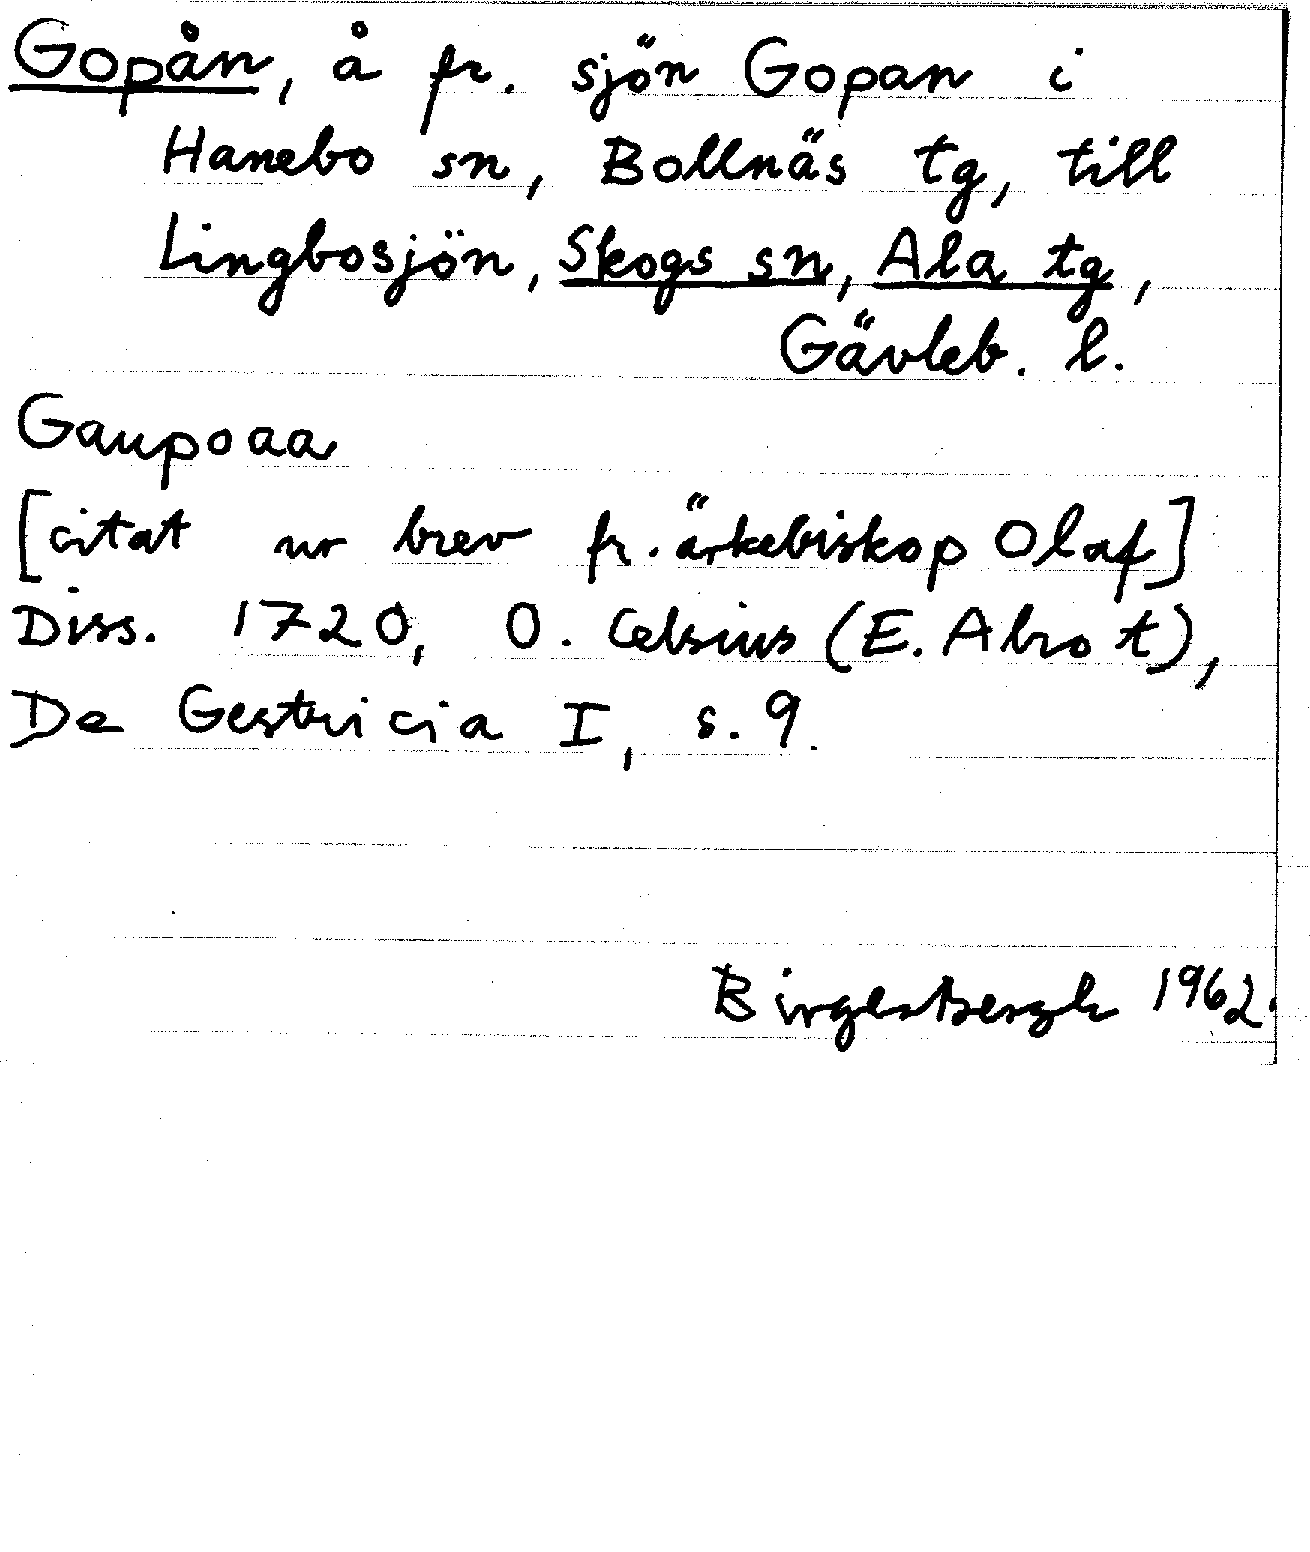 Gopån, å fr. sjön Gopan i
Hanebo sn, Bollnäs tg, till
Lingbosjön, Skogs sn, Ala tg,
Gävleb. l.
Gaupoaa
[citat ur brev fr. ärkebiskop Olaf]
Diss. 1720, O. Celsius (E. Abrot),
De Gestricia I, s. 9.
Birger Bergh 1962.